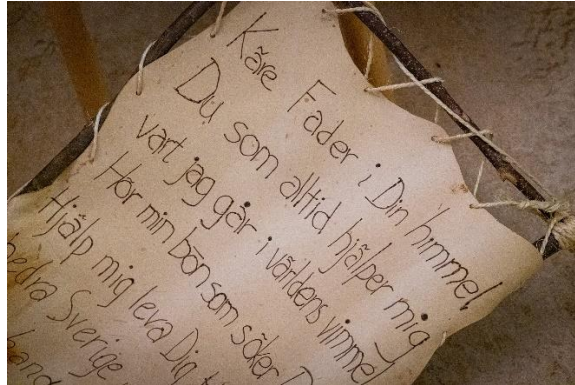 Kåre Fader i Din himmel
Du, som alltid hjälper mig
vart jag går i världens vimmel
Hör min bön som söker
Hjälp mig leva Dig
hedra Sverige